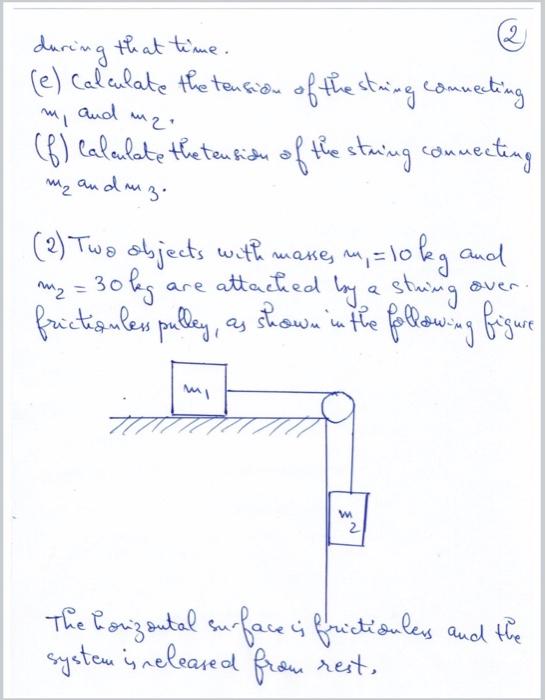 (2)
during that time.
(e) Calculate the tension of the string connecting
m1 and m2.
(f) Calculate the tension of the string connecting
m2 and m3.
(2) Two objects with masses m1 = 10 kg and
m2 = 30 kg are attached by a string over
frictionless pulley, as shown in the following figure
m1
m
2
The horizontal surface is frictionless and the
system is released from rest,